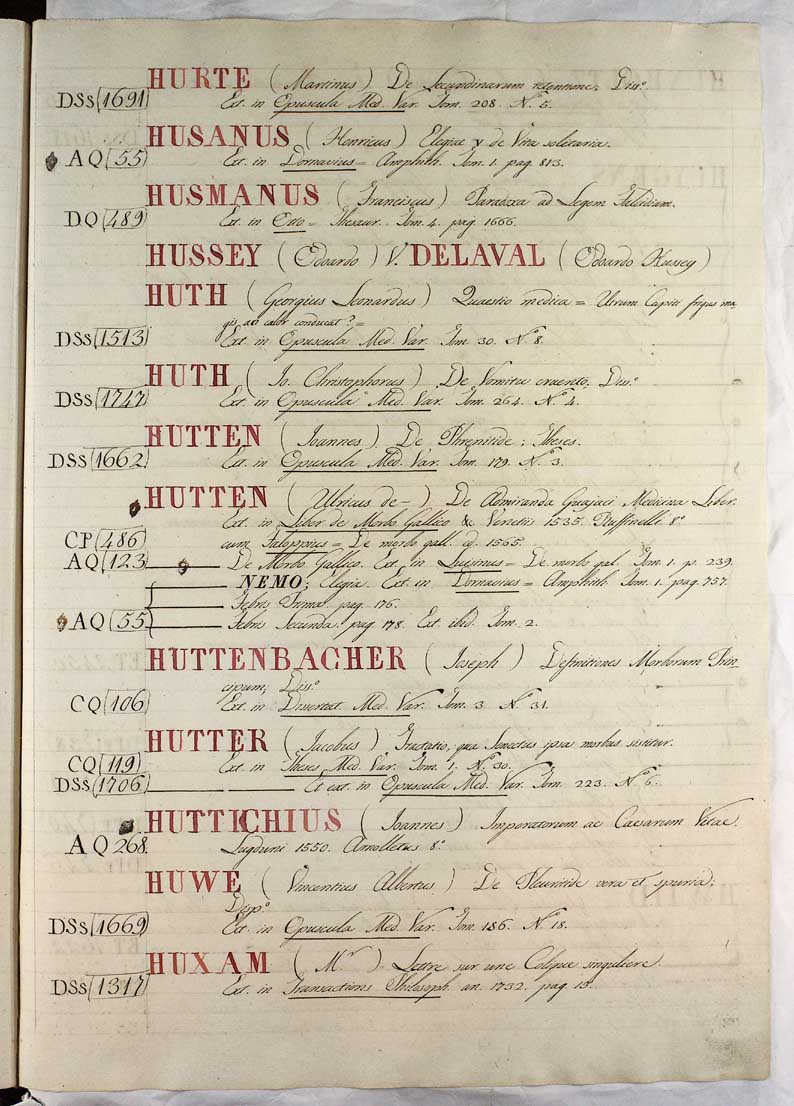 HURTE (Martinus) De Secundinarum retentione, Diss.º
DSs 1691 Ext. in Opuscula Med. Var. Tom. 208. N.º 5.
HUSANUS (Henricus) Elegiae y de Vita solitaria.
AQ 55 Ext. in Dornavius = Amphith. Tom. 1. pag 813.
HUSMANUS (Franciscus) Paradoxa ad Legem Falcidiam.
DQ 489 Ext. in Otto = Thesaur. Tom. 4. pag. 1666.
HUSSEY (Edoardo) V. DELAVAL (Edoardo Hussey)
HUTH (Georgius Leonardus) Quaestio medica = Utrum Capiti frigus ma-
gis an calor conducat? =
DSs 1513 Ext. in Opuscula Med. Var. Tom. 30. N.º 8.
HUTH (Io. Christophorus) De Vomitu cruento, Diss.º
DSs 1747 Ext. in Opuscula Med. Var. Tom. 264. N.º 4.
HUTTEN (Ioannes) De Phrenitide; Theses.
DSs 1662 Ext. in Opuscula Med. Var. Tom. 179. N.º 3.
HUTTEN (Ulricus de-) De Admiranda Guajaci Medicina Liber.
Ext. in Liber de Morbo Gallico & Venetiis 1535. Ruffinelli. 8.º
CP 486 cum Faloppius = De morbo gall. ed. 1565.
AQ 123 De Morbo Gallico. Ext. in Luisinus = De morbo gal. Tom. 1. p. 239.
NEMO; Elegia. Ext. in Dornavius = Amphith. Tom. 1. pag. 757.
Febris Prima. pag. 176.
AQ 55 Febris Secunda. pag. 178. Ext. ibid. Tom. 2.
HUTTENBACHER (Joseph) Definitiones Morborum Prin-
cipum; Diss.º
CQ 106 Ext. in Dissertat. Med. Var. Tom. 3. N.º 31.
HUTTER (Jacobus) Tractatio, qua Senectus ipsa morbus sistitur.
CQ 119 Ext. in Theses Med. Var. Tom. 1. N.º 30.
DSs 1706 Et ext. in Opuscula Med. Var. Tom. 223. N.º 6.
HUTTICHIUS (Ioannes) Imperatorum ac Caesarum Vitae.
AQ 268. Lugduni 1550. Arnolletus 8.º
HUWE (Vincentius Albertus) De Pleuritide vera et spuria;
Disp.º
DSs 1669 Ext. in Opuscula Med. Var. Tom. 186. N.º 18.
HUXAM (M.r) Lettre sur une Colique singuliere.
DSs 1317 Ext. in Transactions Philosoph. an. 1732. pag 15.